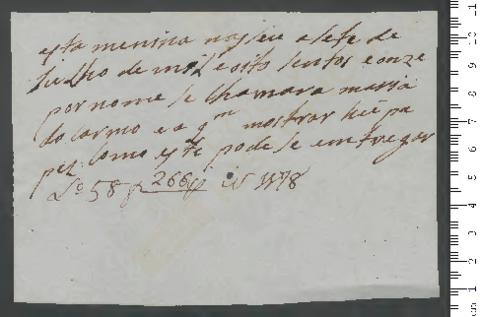 esta menina nasseu a sete de
Julho de mil e oito sentos e onze
por nome se Chamara maria
do Carmo e a qm mostrar hũ pa
pel Como este pode se emtregar
Lo 58 f 266 No 1178